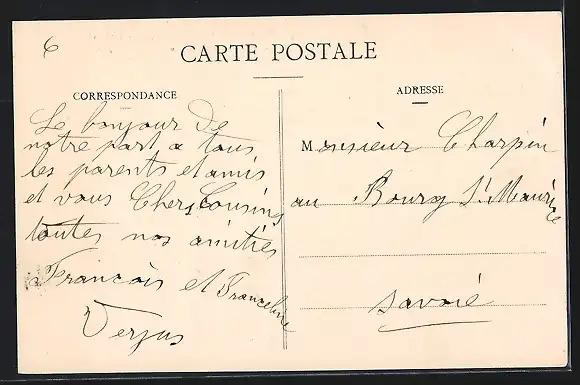 6
CARTE POSTALE
CORRESPONDANCE
ADRESSE
Le bonjour de
notre part a tous
les parents et amis
et vous Chers Cousins
toutes nos amitiés
François et Franceline
Verjus
Monsieur Charpin
au Bourg St Maurice
Savoié